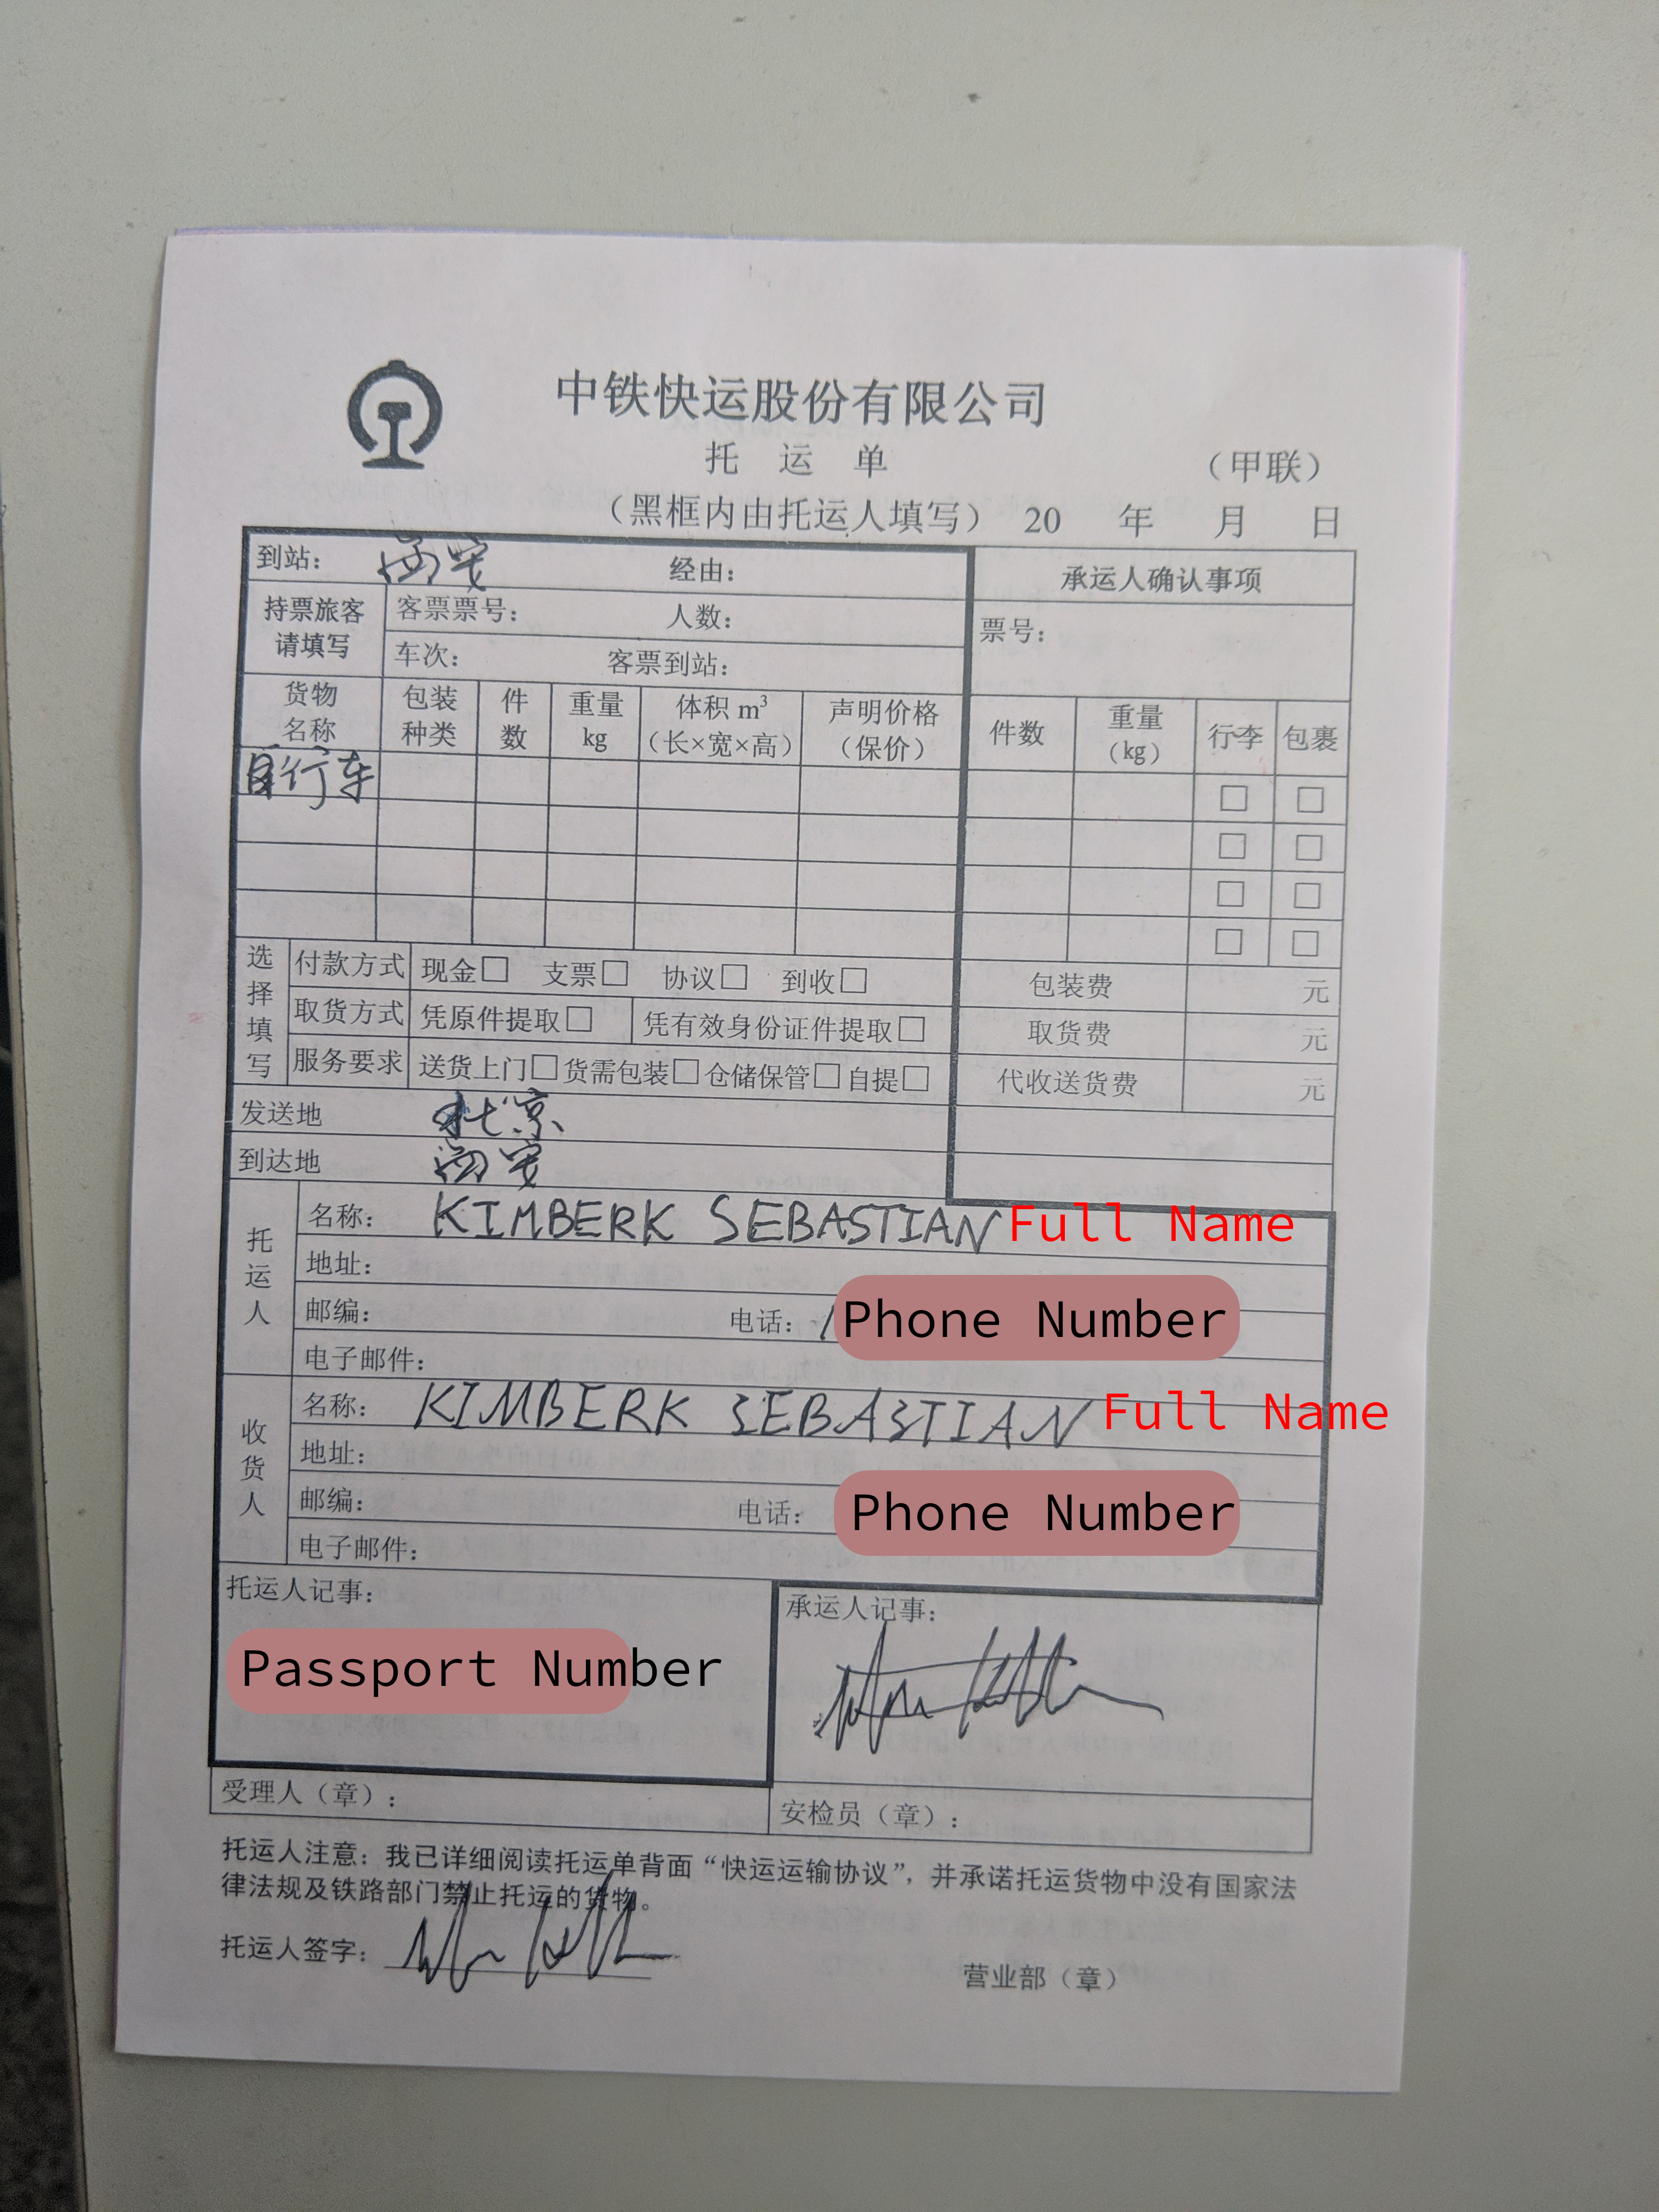 中铁快运股份有限公司
托 运 单
（甲联）
（黑框内由托运人填写） 20 年 月 日
到站： 西安 经由：
承运人确认事项
持票旅客请填写
客票票号： 人数：
票号：
车次： 客票到站：
货物名称 包装种类 件数 重量kg 体积 m³（长×宽×高） 声明价格（保价） 件数 重量（kg） 行李 包裹
自行车 □ □
□ □
□ □
□ □
选择填写
付款方式 现金□ 支票□ 协议□ 到收□ 包装费 元
取货方式 凭原件提取□ 凭有效身份证件提取□ 取货费 元
服务要求 送货上门□货需包装□仓储保管□自提□ 代收送货费 元
发送地 北京
到达地 西安
托运人
名称： KIMBERK SEBASTIAN Full Name
地址：
邮编： 电话： 1 Phone Number
电子邮件：
收货人
名称： KIMBERK SEBASTIAN Full Name
地址：
邮编： 电话： Phone Number
电子邮件：
托运人记事： 承运人记事：
Passport Number
受理人（章）： 安检员（章）：
托运人注意：我已详细阅读托运单背面“快运运输协议”，并承诺托运货物中没有国家法
律法规及铁路部门禁止托运的货物。
托运人签字：
营业部（章）